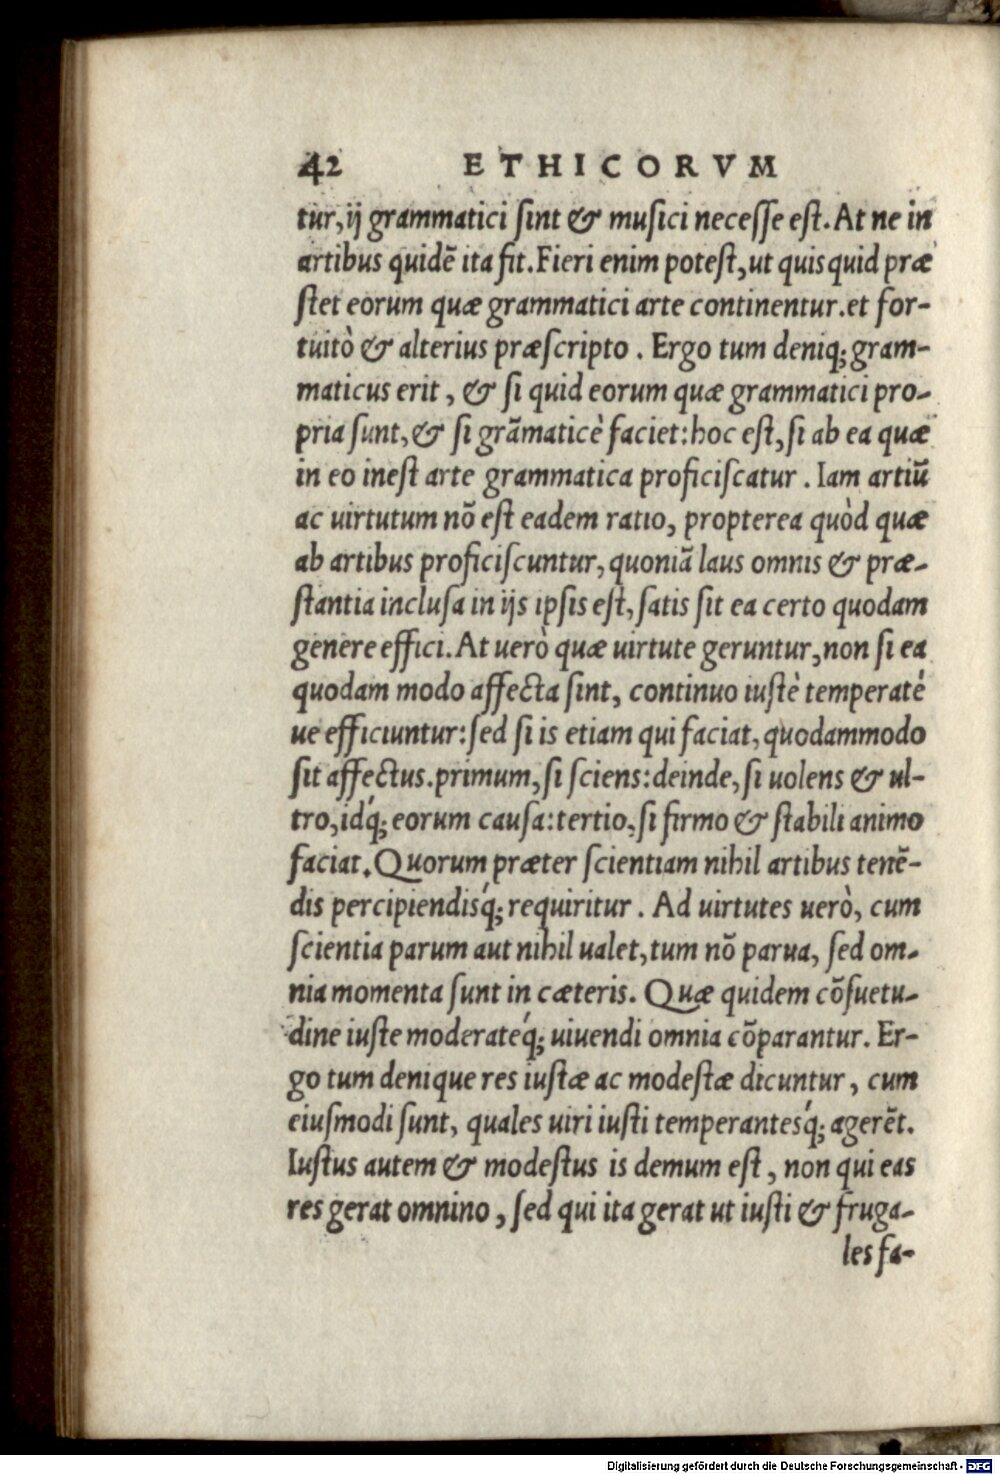 42 ETHICORVM
tur, ij grammatici ſint & muſici neceſſe eſt. At ne in
artibus quidē ita fit. Fieri enim poteſt, ut quis quid præ
ſtet eorum quæ grammatici arte continentur. et for-
tuitò & alterius præſcripto. Ergo tum deniq; gram-
maticus erit, & ſi quid eorum quæ grammatici pro-
pria ſunt, & ſi grāmaticè faciet: hoc eſt, ſi ab ea quæ
in eo ineſt arte grammatica proficiſcatur. Iam artiū
ac uirtutum nō eſt eadem ratio, propterea quòd quæ
ab artibus proficiſcuntur, quoniā laus omnis & præ-
ſtantia incluſa in ijs ipſis eſt, ſatis ſit ea certo quodam
genere effici. At uerò quæ uirtute geruntur, non ſi ea
quodam modo affecta ſint, continuo iuſtè temperaté
ue efficiuntur: ſed ſi is etiam qui faciat, quodammodo
ſit affectus. primum, ſi ſciens: deinde, ſi uolens & ul-
tro, idq́; eorum cauſa: tertio, ſi firmo & ſtabili animo
faciat. Quorum præter ſcientiam nihil artibus tenē-
dis percipiendisq́; requiritur. Ad uirtutes uerò, cum
ſcientia parum aut nihil ualet, tum nō parua, ſed om-
nia momenta ſunt in cæteris. Quæ quidem cōſuetu-
dine iuſte moderateq́; uiuendi omnia cōparantur. Er-
go tum denique res iuſtæ ac modeſtæ dicuntur, cum
eiuſmodi ſunt, quales uiri iuſti temperantesq́; agerēt.
Iuſtus autem & modeſtus is demum eſt, non qui eas
res gerat omnino, ſed qui ita gerat ut iuſti & fruga-
les fa-
Digitalisierung gefördert durch die Deutsche Forschungsgemeinschaft - DFG